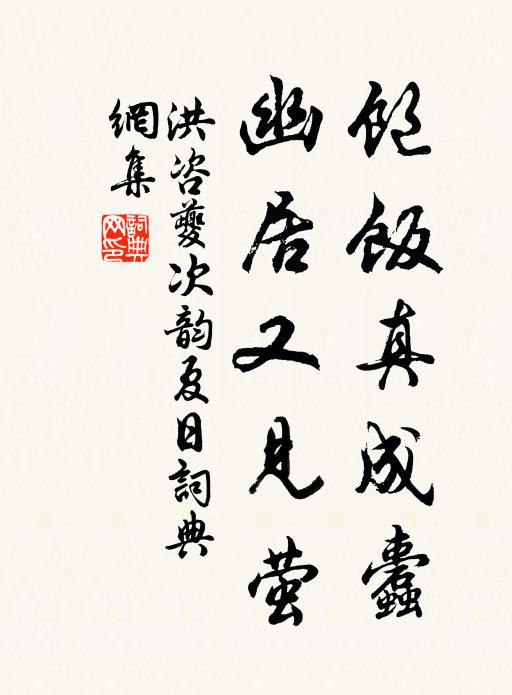 飽飯真成蠹
幽居又見萤
洪咨夔次韵夏日詞典
網集
詞典網印